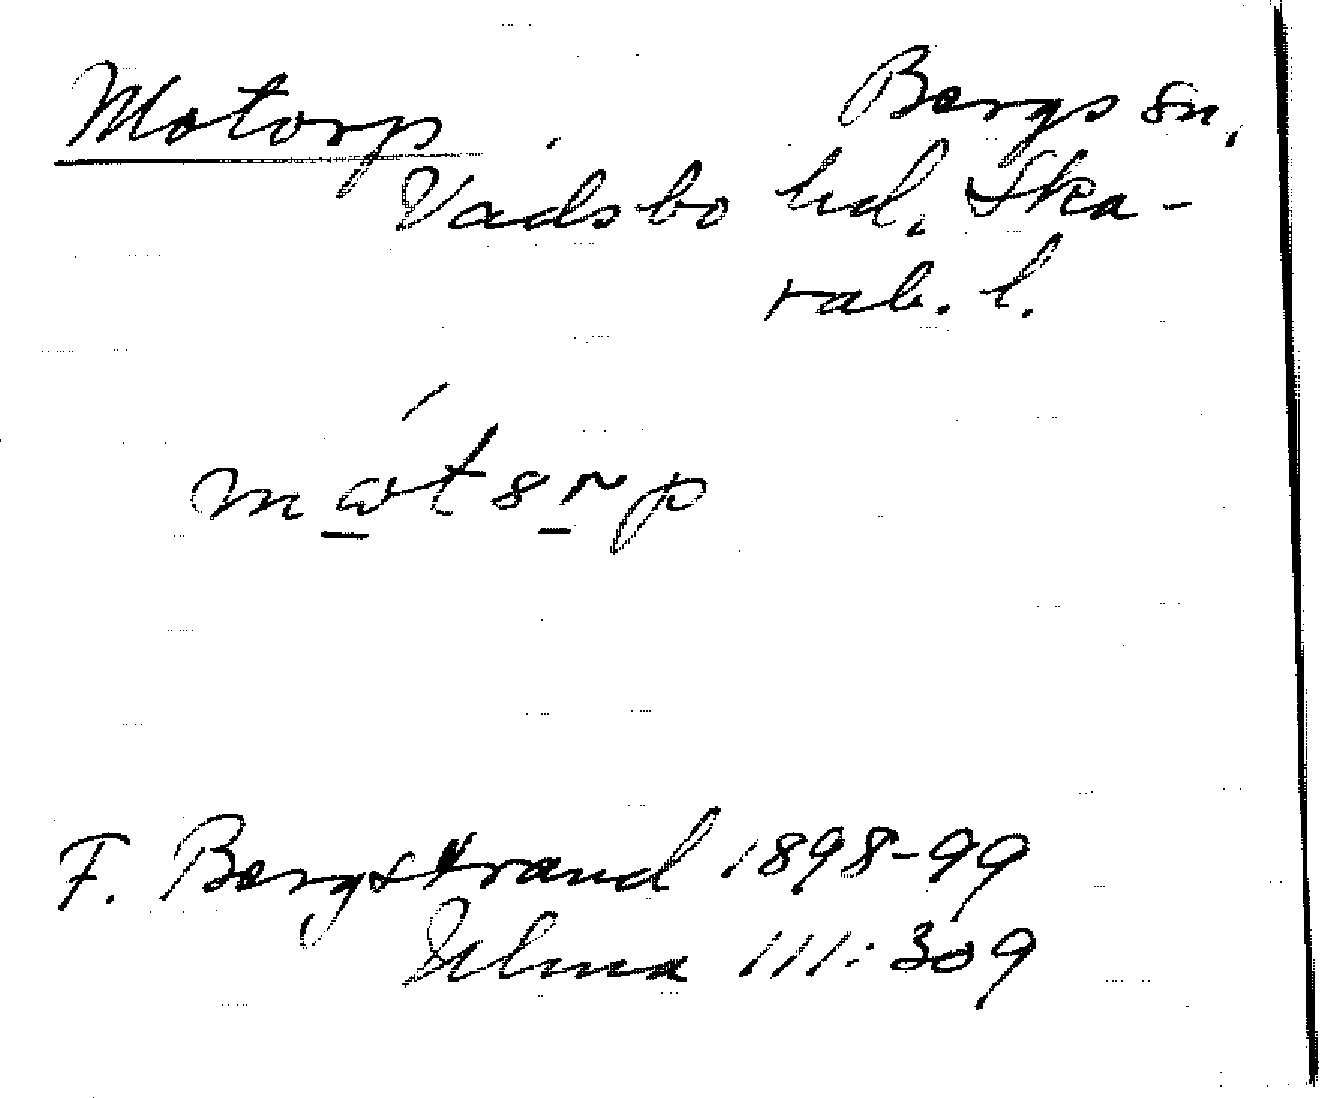 Motorp. Bergs sn,
Vadsbo hd, Ska-
rab. l.
F. Bergstrand 1898-99
Ulma 111:309